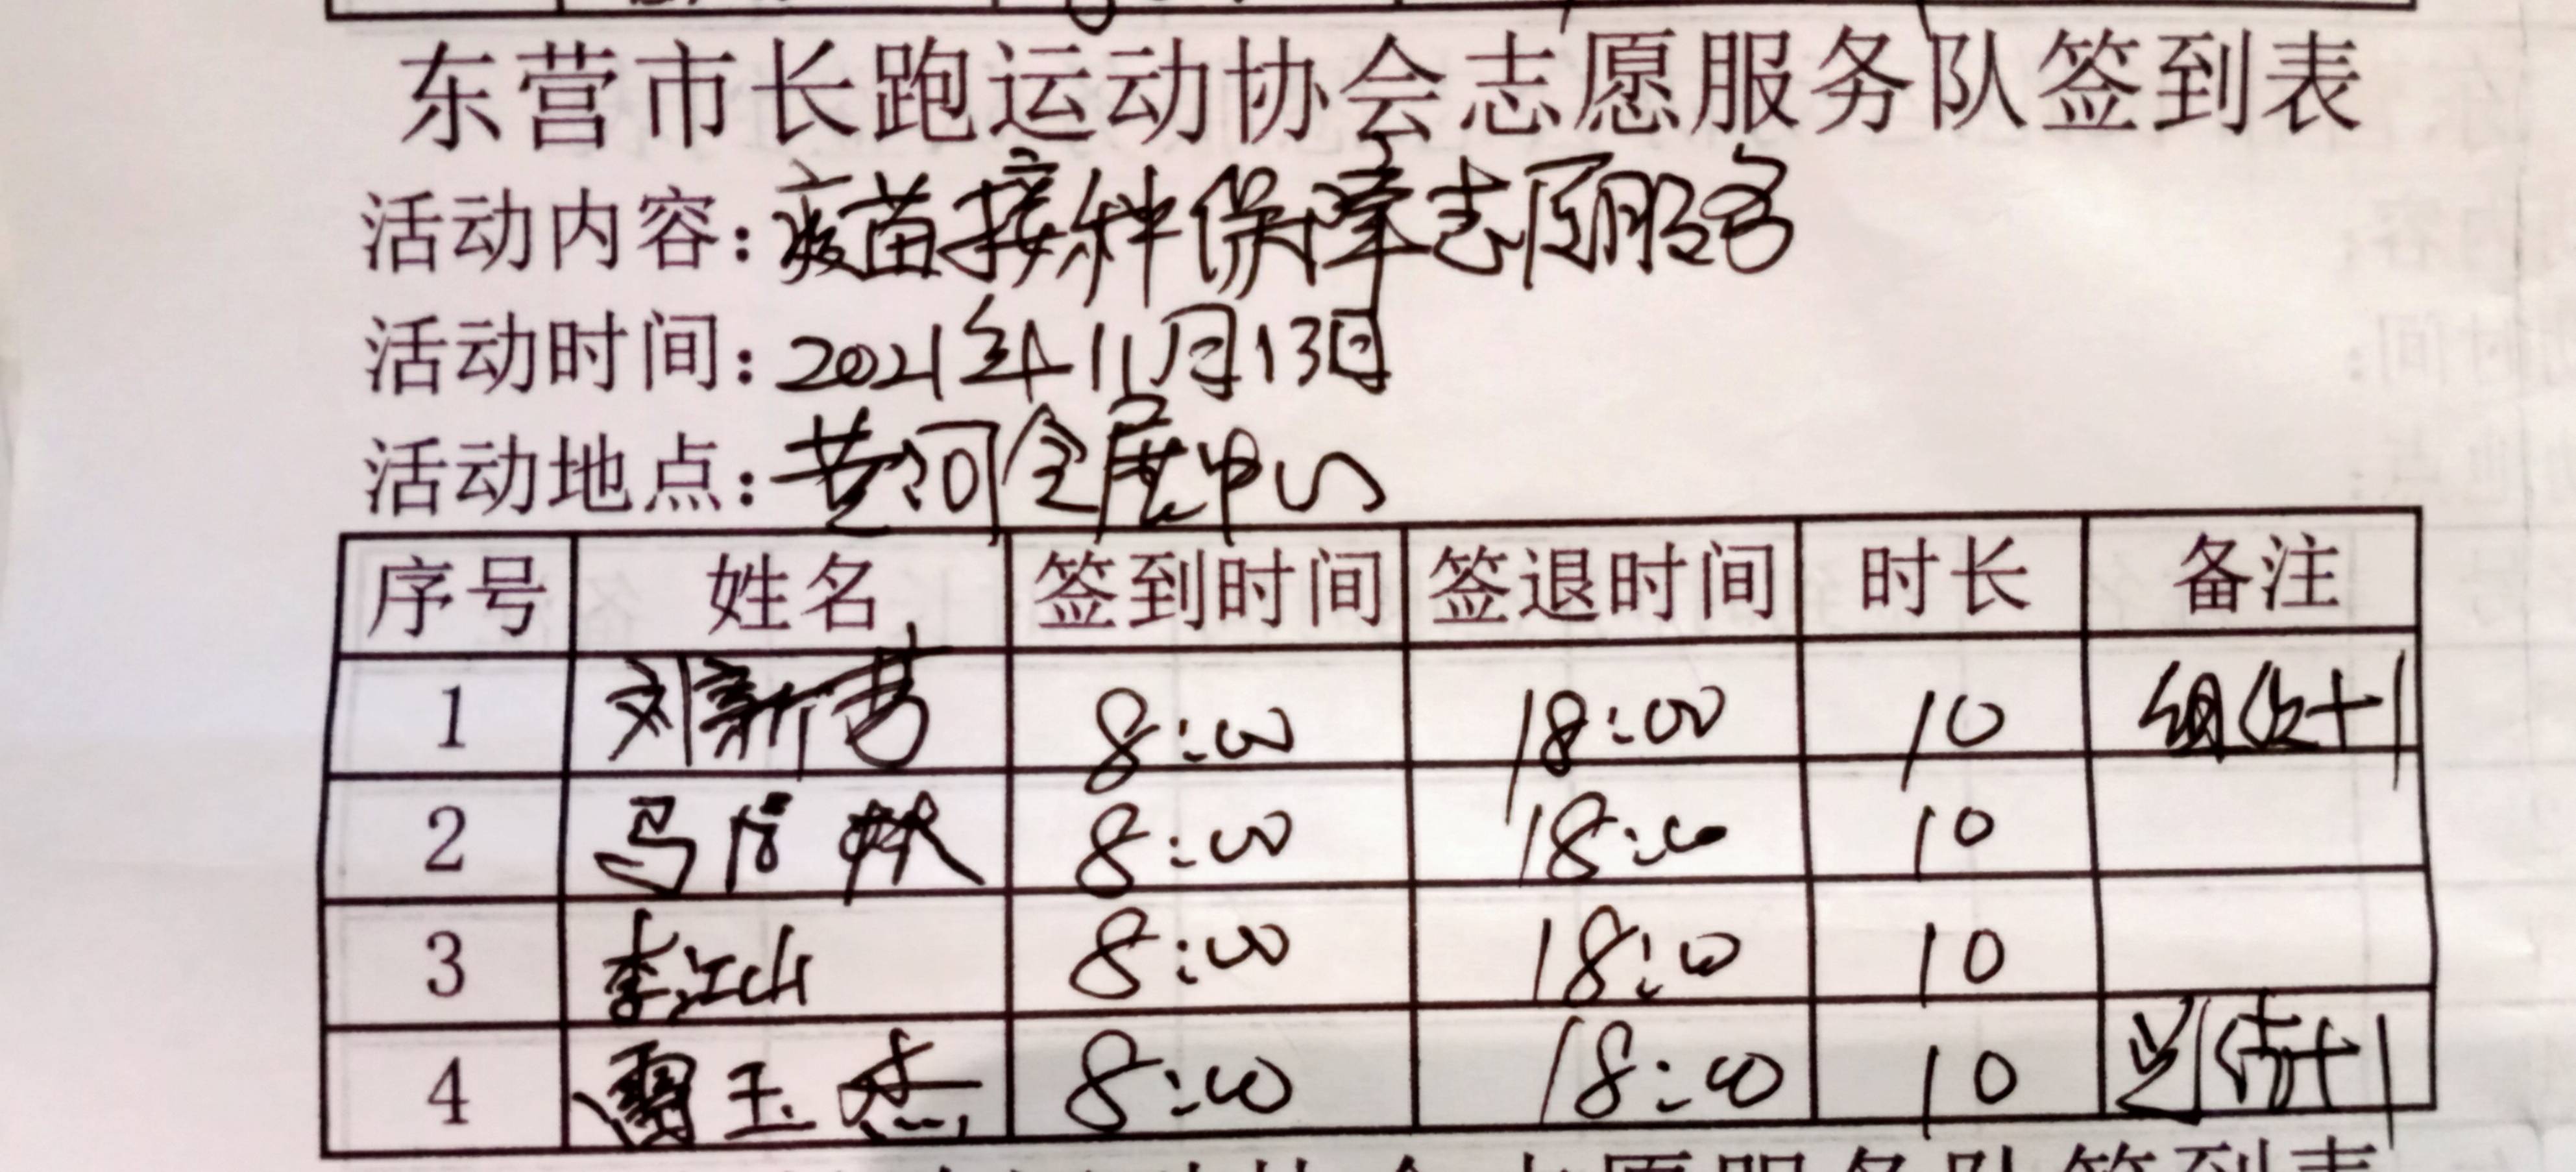 东营市长跑运动协会志愿服务队签到表
活动内容：疫苗接种保障志愿服务
活动时间：2021年11月13日
活动地点：黄河会展中心
序号 姓名 签到时间 签退时间 时长 备注
1 刘新营 8:00 18:00 10 组织+1
2 马 林 8:00 18:00 10
3 李江山 8:00 18:00 10
4 雷玉杰 8:00 18:00 10 +1